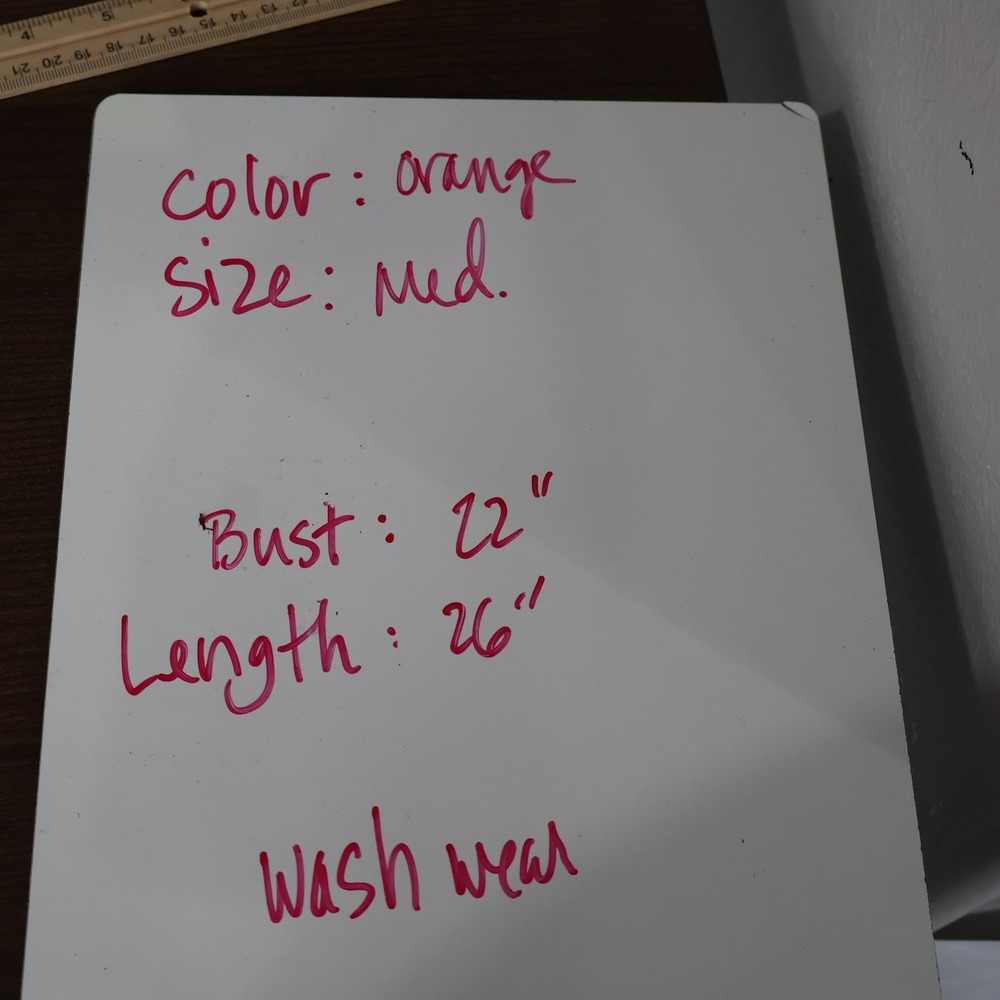 4 5
21 20 19 18 17 16 15 14 13 12
Color: orange
Size: Med.
Bust: 22"
Length: 26"
Wash wear